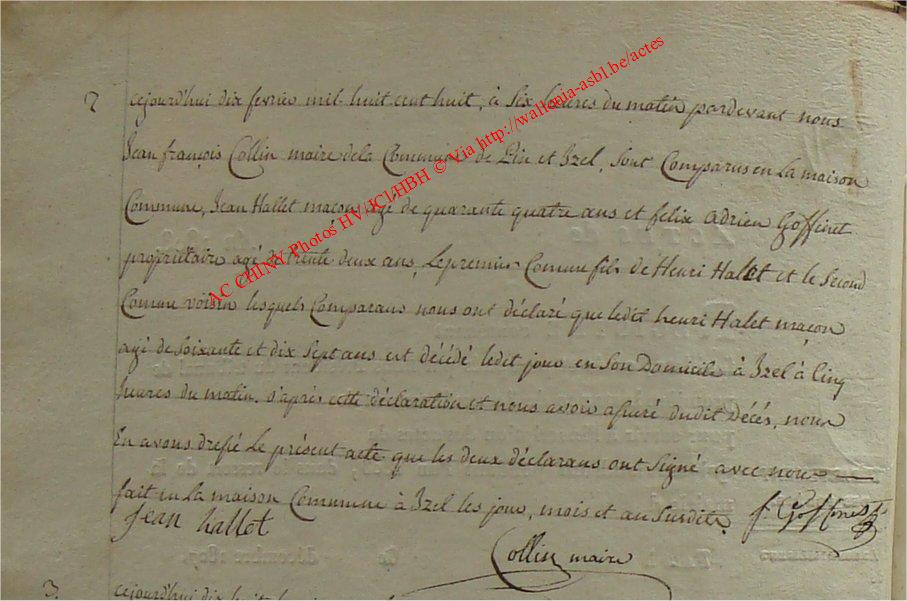 2 cejourd'hui dix fevrier mil huit cent huit, à Six heures du matin pardevant nous
Jean françois Collin maire dela Commune de Pin et Izel, Sont Comparus en La maison
Commune, Jean Hallet maçon agé de quarante quatre ans et felix adrien Goffinet
propriétaire agé de trente deux ans, Le premier Comme fils de Henri Halet et le Second
Comme voisin lesquels Comparans nous ont déclaré que ledit henri Halet maçon
agé de Soixante et dix Sept ans est décédé ledit jour en Son Domicile à Izel à Cinq
heures du matin. d'après cette déclaration et nous avoir assuré dudit Décés, nous
En avons dressé Le présent acte que les deux déclarans ont Signé avec nous
fait en La maison Commune à Izel les jour, mois et an Susdits. f. Goffinet
jean hallet
Collin maire
3. cejourd'hui dix huit
AC CHINY Photos HV/JCL/HBH © Via http://wallonia-asbl.be/actes